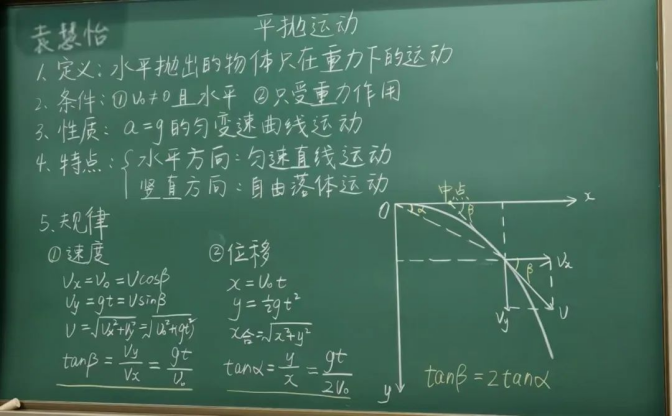 平抛运动
袁慧怡
1. 定义：水平抛出的物体只在重力下的运动
2. 条件：①v₀≠0且水平 ②只受重力作用
3. 性质：a=g的匀变速曲线运动
4. 特点：{水平方向：匀速直线运动
竖直方向：自由落体运动
5. 规律
①速度
Vx=V₀=Vcosβ
Vy=gt=Vsinβ
V=√(Vx²+Vy²)=√(V₀²+(gt)²)
tanβ=Vy/Vx=gt/V₀
②位移
x=V₀t
y=½gt²
x合=√(x²+y²)
tanα=y/x=gt/2V₀
中点
O α β x
β Vx
Vy V
y
tanβ=2tanα